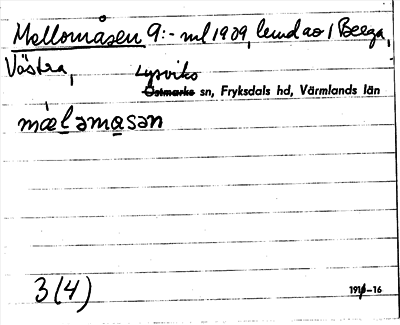 Mellomåsen 9:- ml 1909, lend ao / Berga,
Västra,
Lysviks
Östmarks sn, Fryksdals hd, Värmlands län
mǽlǝmasǝn
3(4)
191 -16